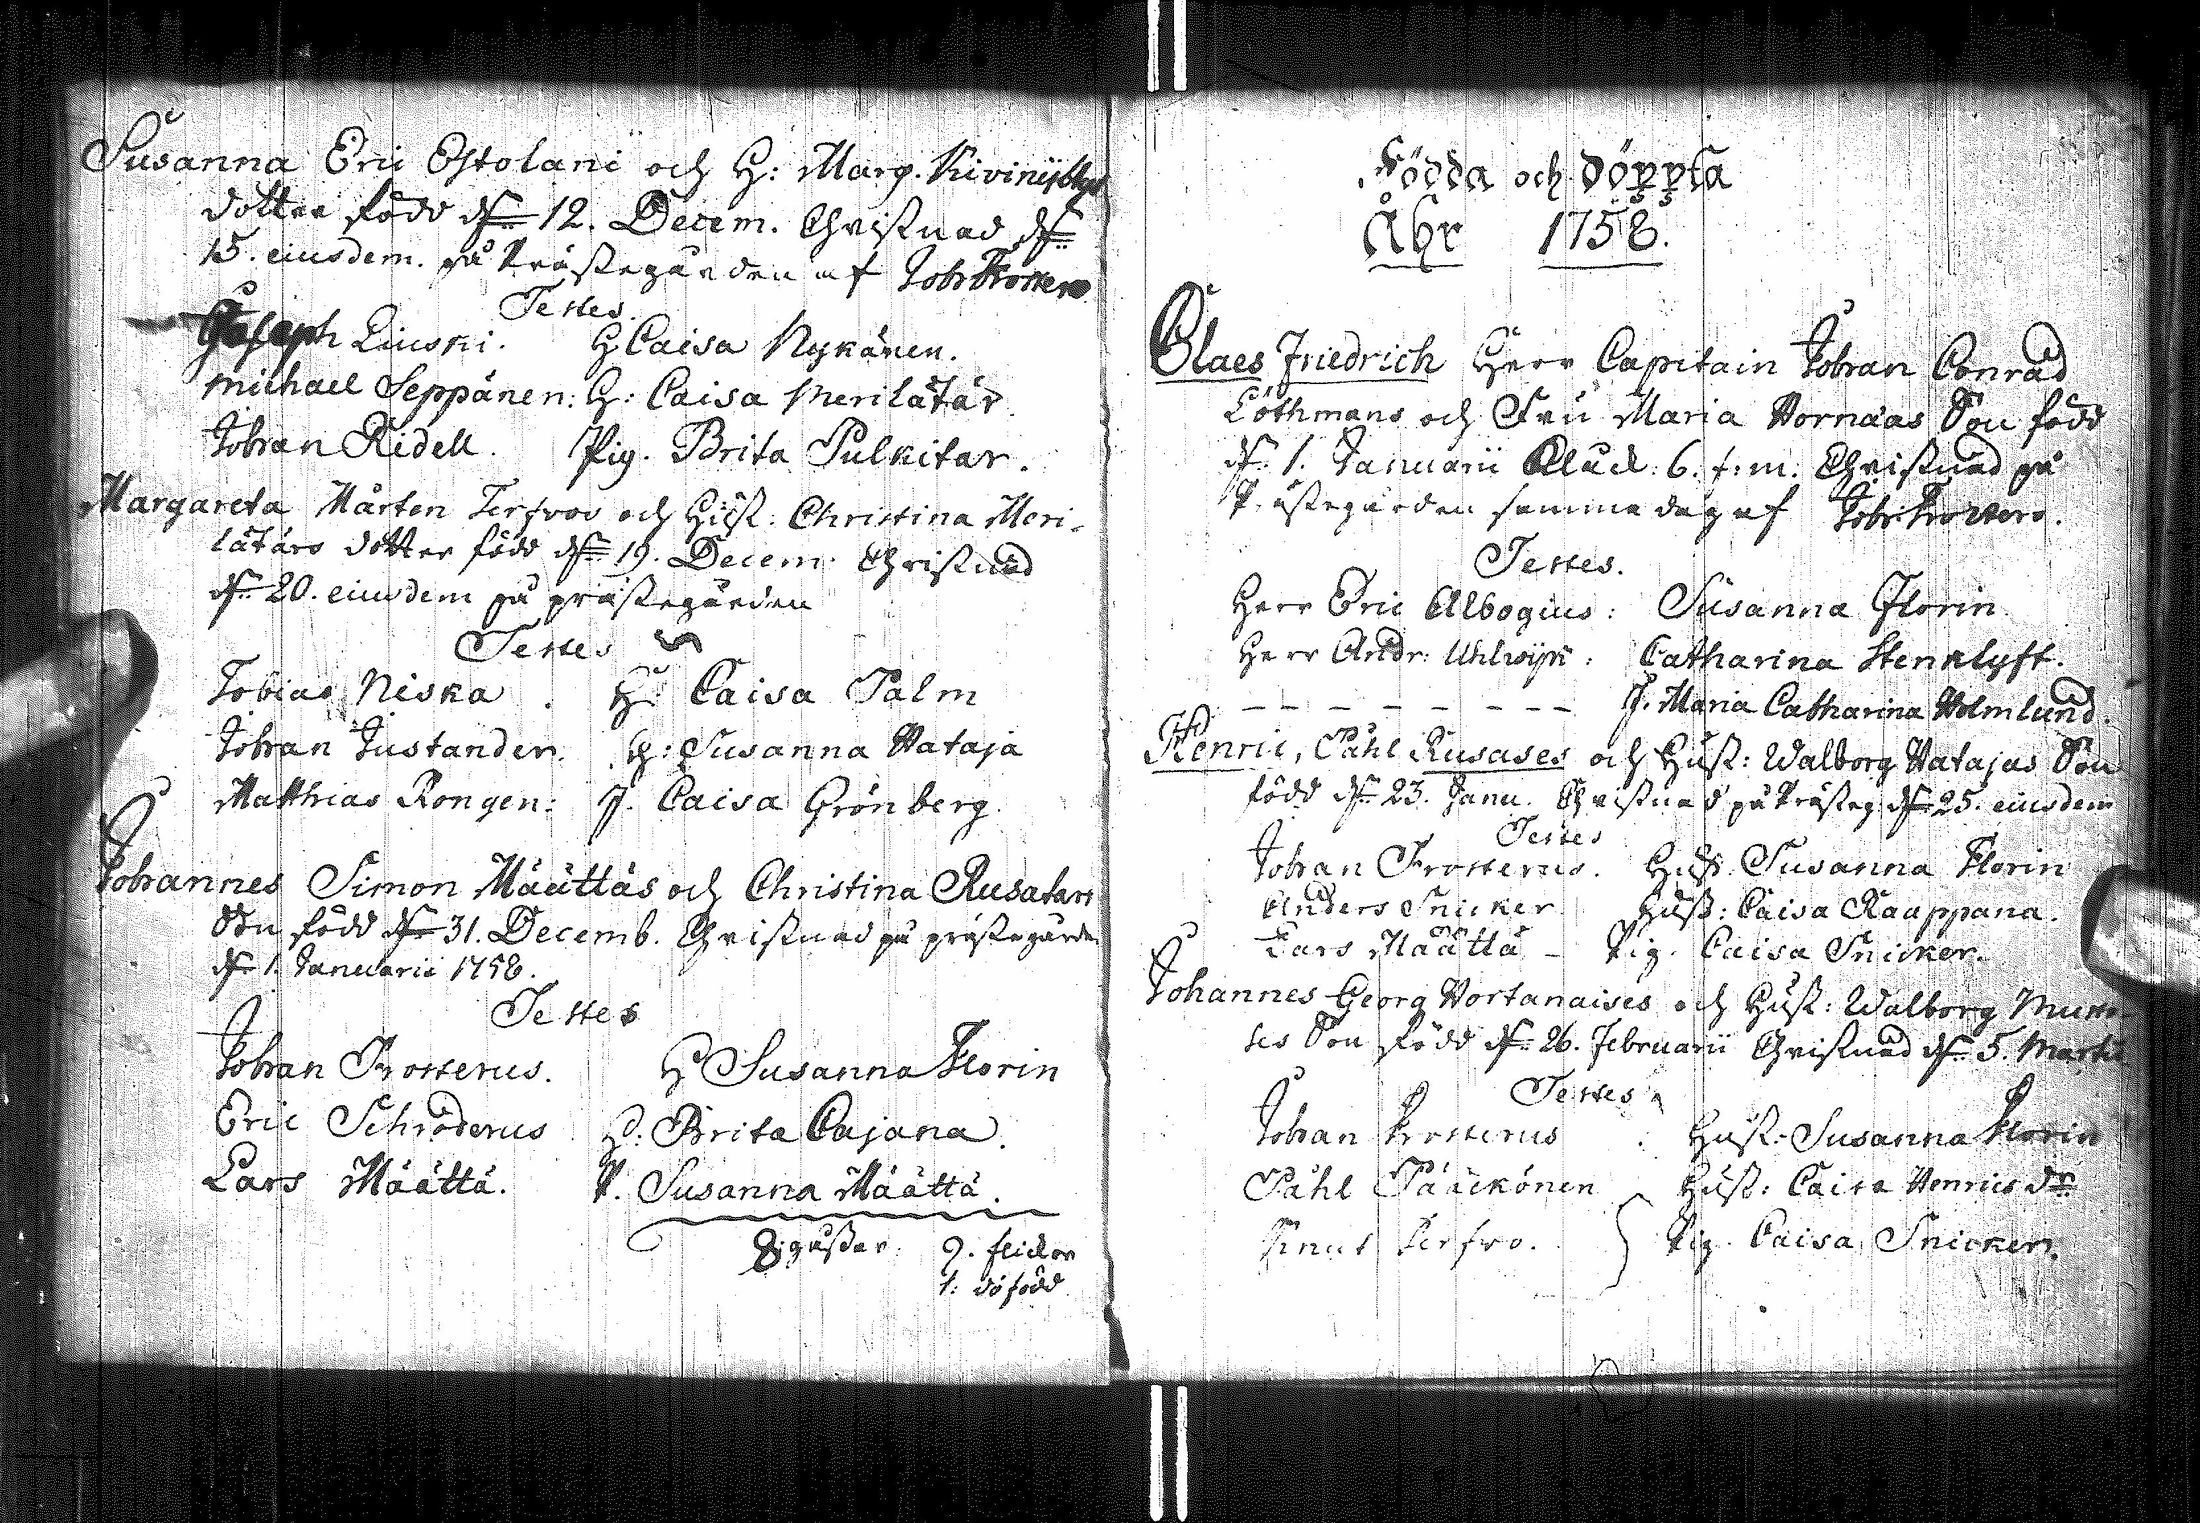 Susanna Eric Ostolani och H: Marg.
dotter född dn 12. Decem. Christnad dn
15. eiusdem. på Prästegården af Joh Frosterus
Testes.
Joseph Liuski. H Caisa Nykänen.
Michael Seppänen: H: Caisa Merilätär
Johan Ridell. Pig. Brita Pulkitar.
Margareta Mårten Terfvos och Hust: Christina Meri-
lätärs dotter född dn 19. Decem. Christnad
dn 20. eiusdem på prästegården
Testes
Tobias Niska. H: Caisa Palm
Johan Justander. H: Susanna Hataja
Matthias Rongen: J. Caisa Grönberg.
Johannes Simon Määttäs och Christina Rusatars
Son född dn 31. Decemb. Christnad på prästegården
dn 1. Januarii 1758.
Testes
Johan Frosterus. H Susanna Florin
Eric Schroderus H: Brita Cajana.
Lars Määttä. P. Susanna Määttä.
8 gossar. 9. flickor
1: död född
Födda och döppta
Åhr 1758.
Claes Friedrich Herr Capitain Johan Conrad
Löthmans och Fru Maria Hornæas Son född
dn 1. Januarii Kluck. 6. f.m. Christnad på
Prästegården samma dag af Joh: Frosterus.
Testes.
Herr Eric Albogius: Susanna Florin
Herr Andr: Uhlwijk: Catharina Stenklyft.
- - - - - - - - J. Maria Catharina Holmlund.
Henric, Påhl Rusases och Hust: Walborg Hatajas Son
född dn 23. Janu. Christnad på Prästeg. dn 25. eiusdem
Testes
Johan Frosterus. Hust. Susanna Florin
Anders Snicker Hust: Caisa Kauppana.
Lars Määttä - Pig. Caisa Snicker.
Johannes Georg Hortanaises och Hust: Walborg
ses Son född dn 26. Februarii Christnad dn 5. Martii
Testes
Johan Frosterus. Hust: Susanna Florin
Påhl Pääckönen Hust: Caisa Henrics dr
Knut Terfvo. Pig. Caisa Snicker.